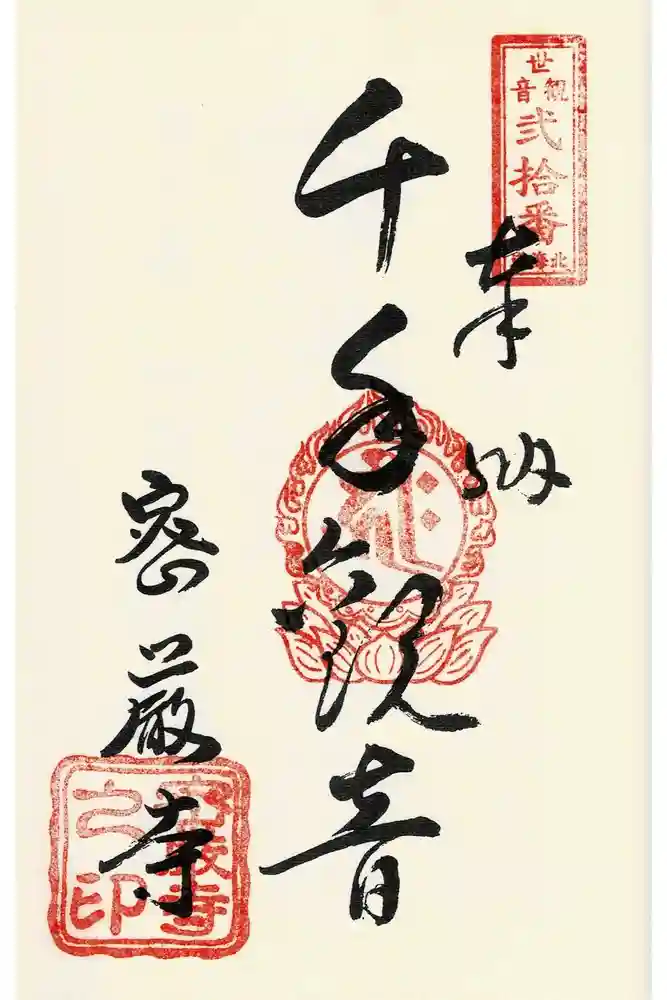 奉納
千手観音
密厳寺
世
観音
弐拾番
北海
密厳寺
之印